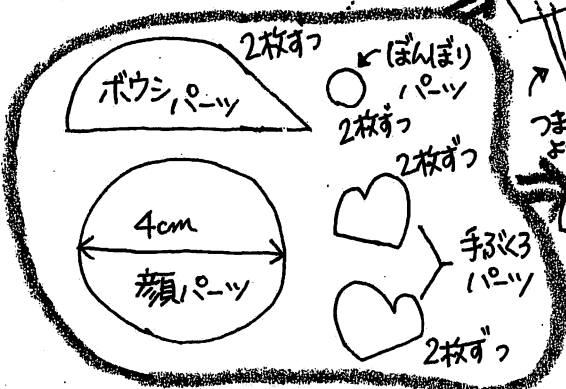 2枚ずつ
ボウシパーツ
ぼんぼり
パーツ
2枚ずつ
2枚ずつ
4cm
顔パーツ
手ぶくろ
パーツ
2枚ずつ
つま
よ